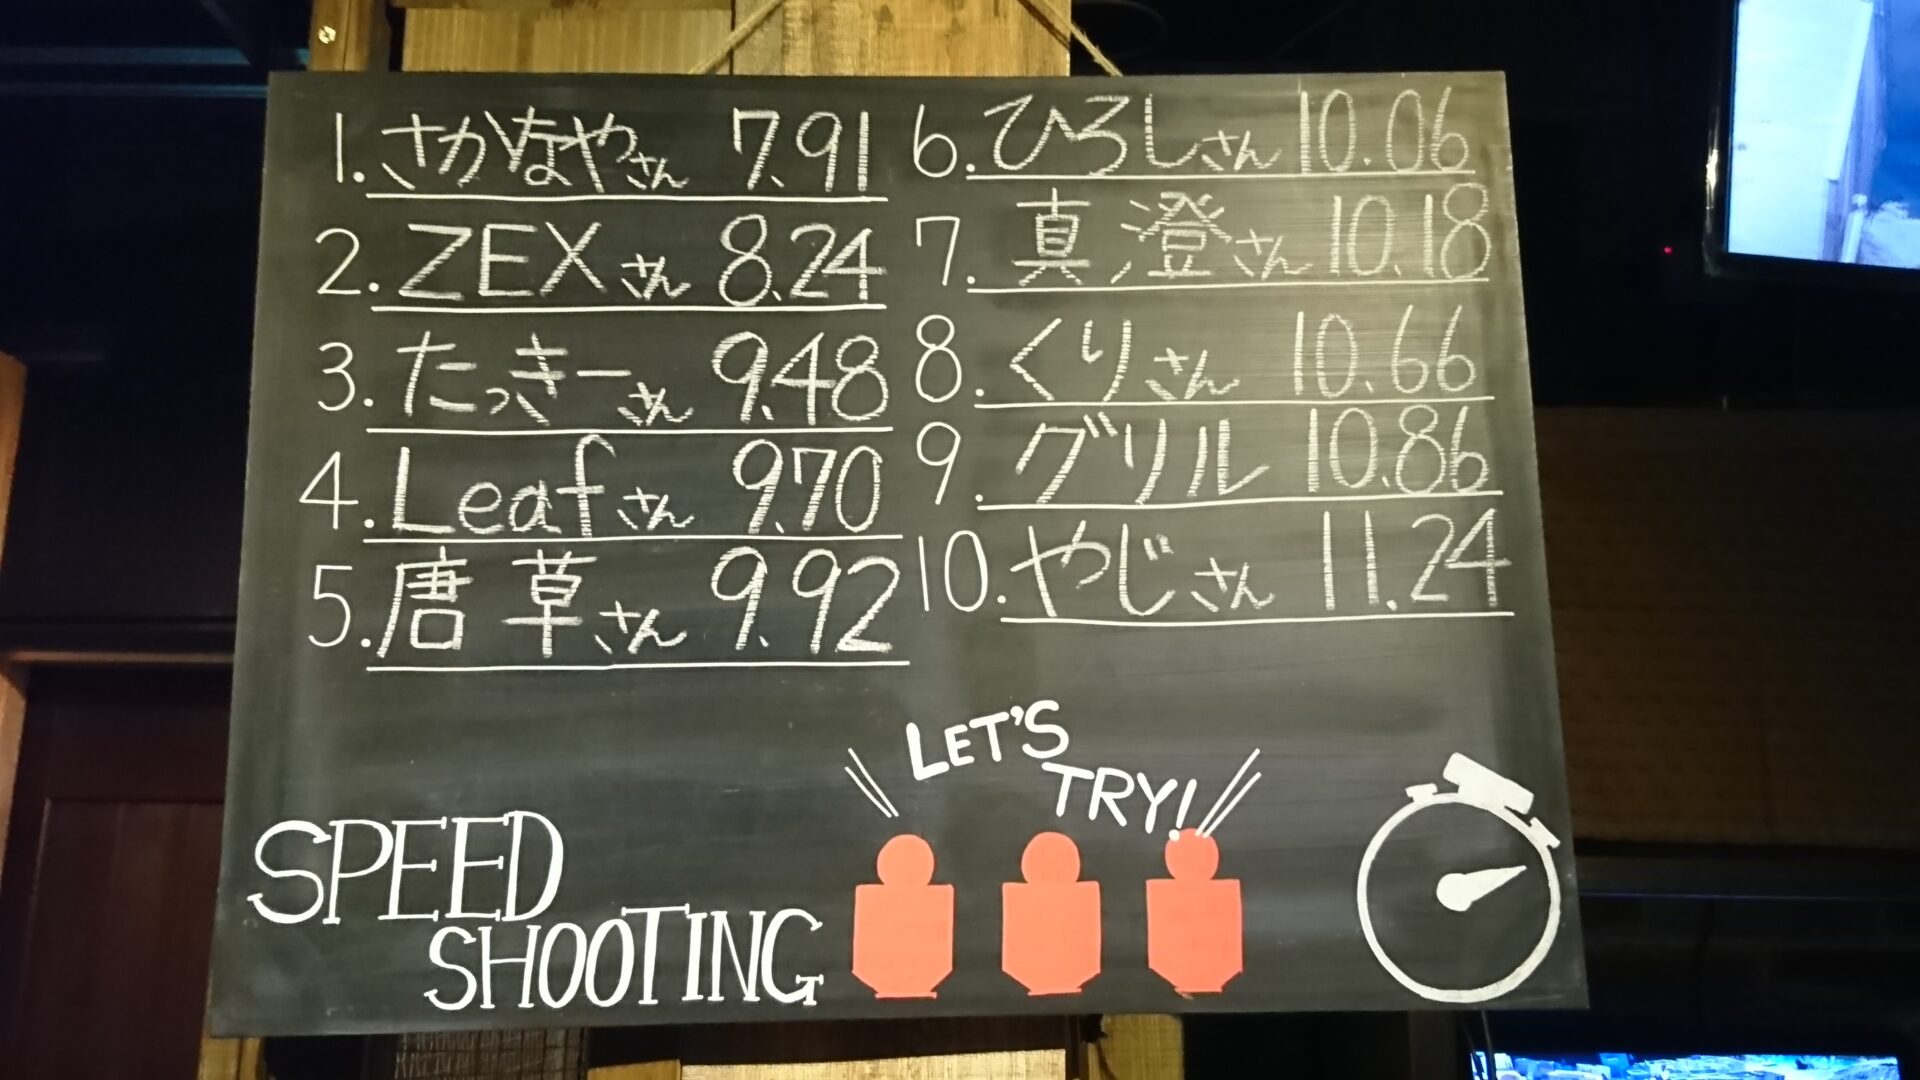 1. さかなやさん 7.91
2. ZEXさん 8.24
3. たっきーさん 9.48
4. Leafさん 9.70
5. 唐草さん 9.92
6. ひろしさん 10.06
7. 真澄さん 10.18
8. くりさん 10.66
9. グリル 10.86
10. やじさん 11.24
LET'S
TRY!
SPEED
SHOOTING